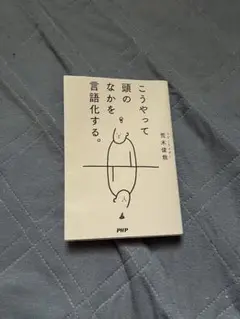 こうやって
頭の
なかを
言語化する。
荒木俊哉
PHP